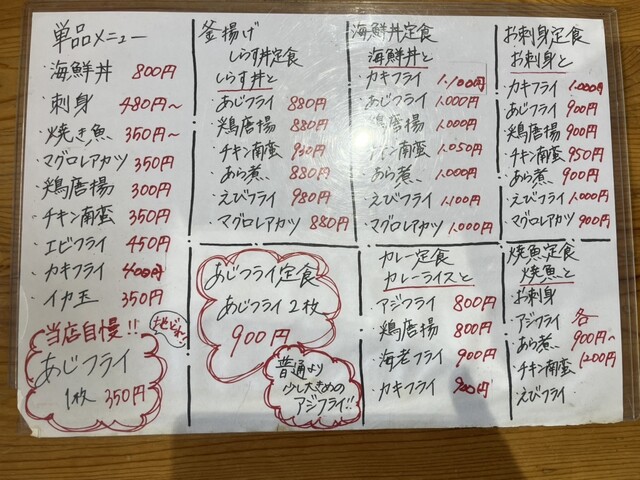 単品メニュー
・海鮮丼 800円
・刺身 480円~
・焼き魚 350円~
・マグロレアカツ 350円
・鶏唐揚 300円
・チキン南蛮 350円
・エビフライ 450円
・カキフライ 400円
・イカ玉 350円
当店自慢!!
地どれ!
あじフライ
1枚 350円
釜揚げ
しらす丼定食
しらす丼と
・あじフライ 880円
・鶏唐揚 880円
・チキン南蛮 930円
・あら煮 880円
・えびフライ 980円
・マグロレアカツ 880円
あじフライ定食
あじフライ2枚
900円
普通より
少し大きめの
アジフライ!!
海鮮丼定食
海鮮丼と
・カキフライ 1,100円
・あじフライ 1,000円
・鶏唐揚 1,000円
・チキン南蛮 1,050円
・あら煮 1,000円
・えびフライ 1,100円
・マグロレアカツ 1,000円
カレー定食
カレーライスと
・アジフライ 800円
・鶏唐揚 800円
・海老フライ 900円
・カキフライ 900円
お刺身定食
お刺身と
・カキフライ 1,000円
・あじフライ 900円
・鶏唐揚 900円
・チキン南蛮 950円
・あら煮 900円
・えびフライ 1,000円
・マグロレアカツ 900円
焼魚定食
焼魚と
・お刺身
・アジフライ 各
・あら煮 900円~
・チキン南蛮 1200円
・えびフライ